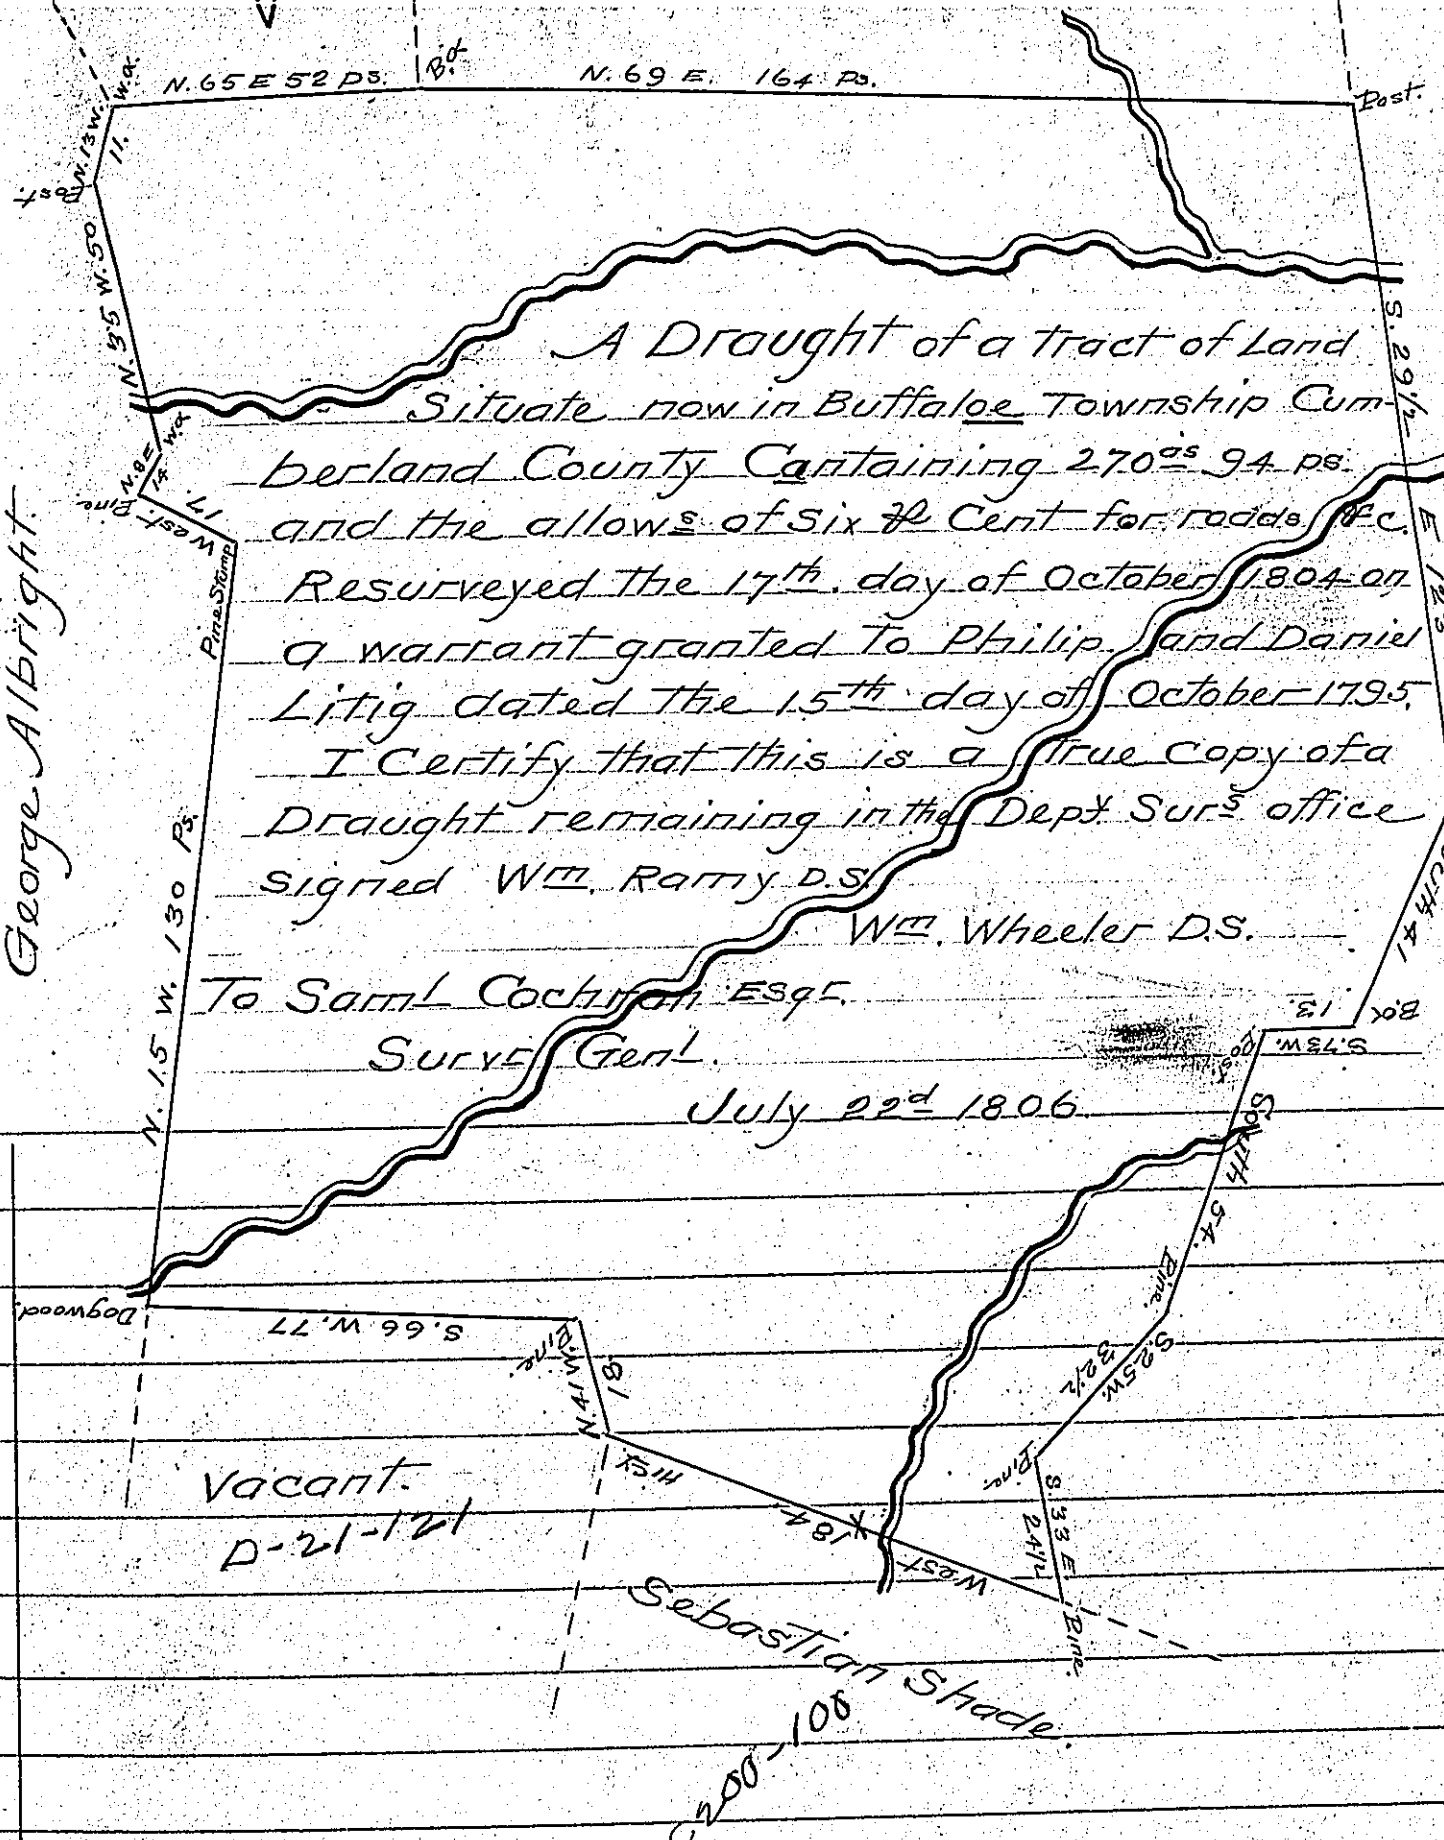 N. 65 E 52 ps.
B.O
N. 69 E. 164 Ps.
Post.
W.O.
N. 13 W.
11.
Post.
N. 35 W. 50
W.O
N. 8 E
14
Pine
West.
17.
Pine Stump
George Albright.
N. 15 W. 130 Ps.
A Draught of a Tract of Land
Situate now in Buffaloe Township Cum-
berland County Cantaining 270as 94 ps.
and the allows of Six ⅌ Cent for roads &c.
Resurveyed the 17th. day of October 1804 on
a warrant granted To Philip and Daniel
Litig dated the 15th day of October 1795.
I Certify that this is a True Copy of a
Draught remaining in the Depy Surs office
signed Wm. Ramy D.S.
Wm. Wheeler D.S.
To Saml Cochran Esqr.
Survr Genl.
July 22d 1806.
S. 29½
E 125
41
B.O.
13.
S. 73 W.
Post.
South 54.
Pine.
S. 25 W.
32½
Pine.
S. 33 E.
24½
Pine.
West
X
184
Hicy
N. 41 W.
18.
Pine.
S. 66 W. 77
Dogwood.
Vacant.
D-21-121
Sebastian Shade.
C 200-108